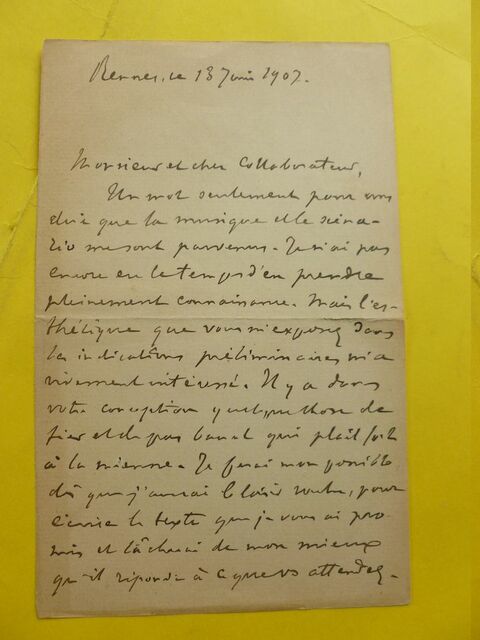 Rennes, ce 13 Juin 1907.
Monsieur et cher Collaborateur,
Un mot seulement pour vous
dire que la musique et le scéna-
rio me sont parvenus. Je n'ai pas
encore eu le temps d'en prendre
pleinement connaissance. Mais l'es-
thétique que vous m'exposez dans
les indications préliminaires m'a
vivement intéressé. Il y a dans
votre conception quelque chose de
fier et de pas banal qui plaît fort
à la mienne. Je ferai mon possible,
dès que j'aurai le loisir voulu, pour
écrire le texte que je vous ai pro-
mis et tâcherai de mon mieux
qu'il réponde à ce que vs attendez.